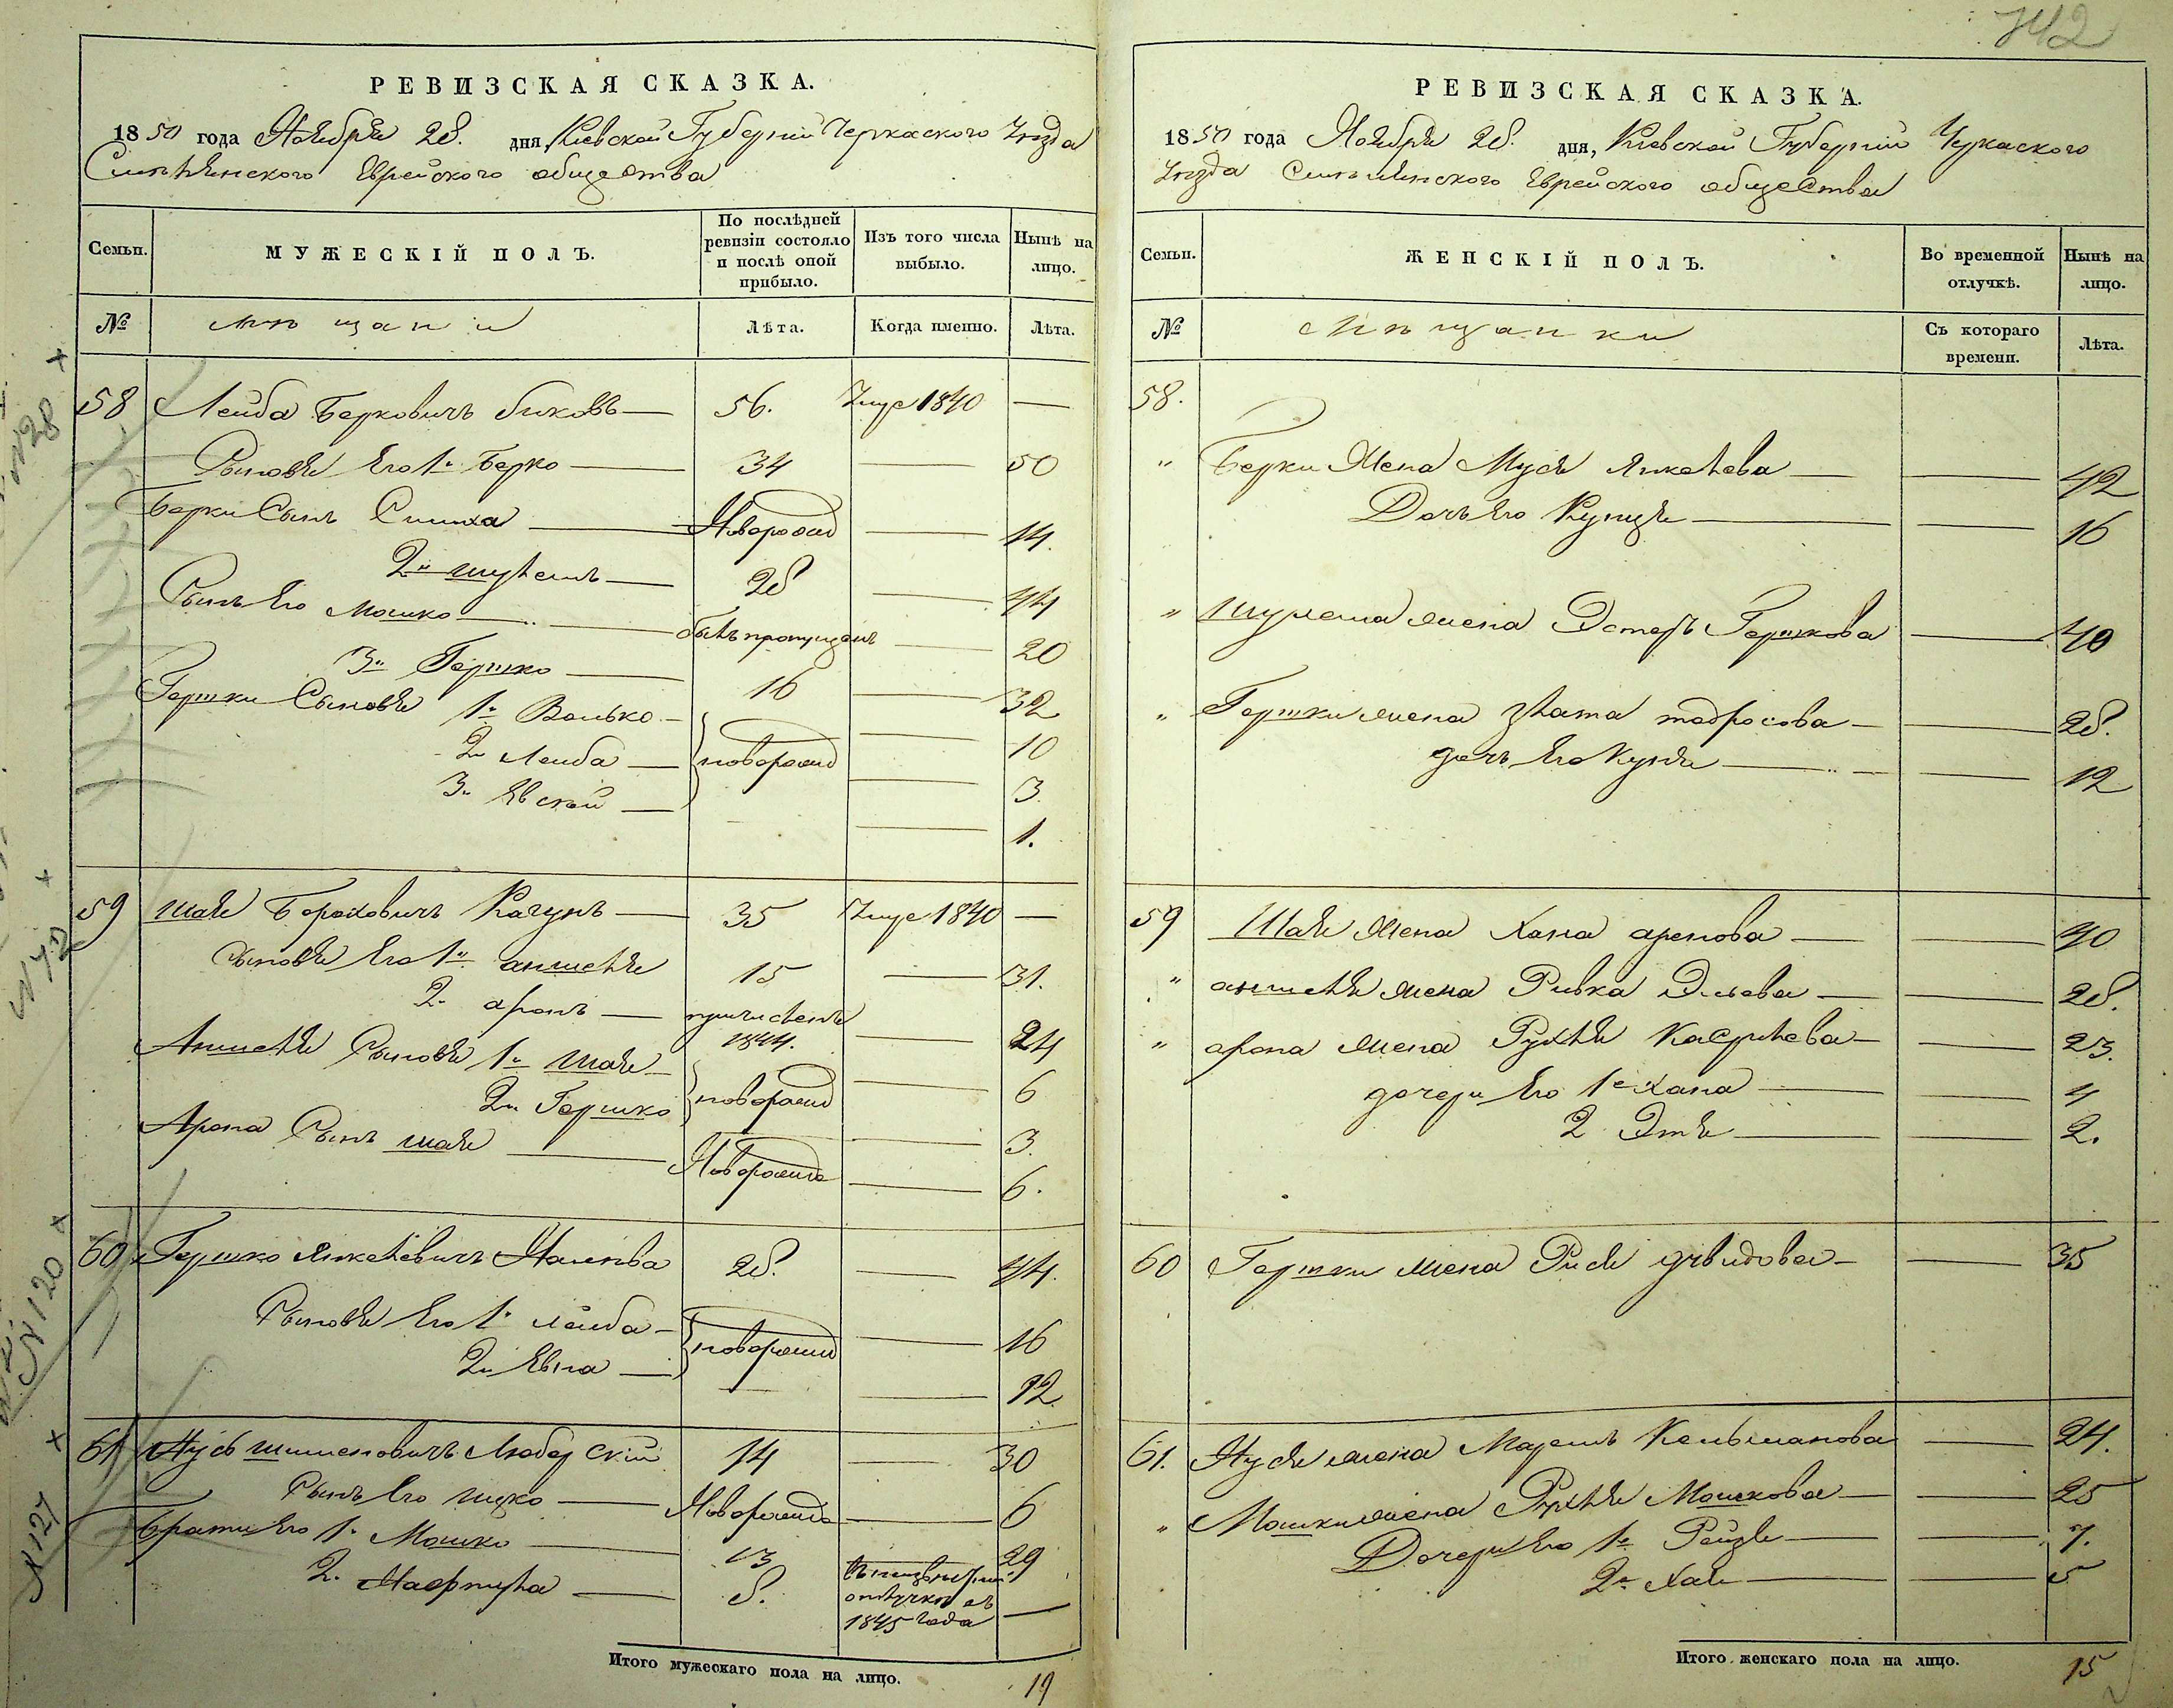 742
РЕВИЗСКАЯ СКАЗКА.
1850 года Ноября 28. дня, Киевской Губерніи Черкаского Уѣзда
Смѣлянского Еврейского общества
Семьи.
МУЖЕСКІЙ ПОЛЪ.
По послѣдней ревизіи состояло и послѣ оной прибыло.
Изъ того числа выбыло.
Нынѣ на лицо.
№
мѣщани
Лѣта.
Когда именно.
Лѣта.
58 Лейба Берковичъ 56. Умре 1840 —
Сыновя Его 1й Берко — 34 — 50
Берки Сынъ Симха — Новорожд — 14.
2й Шулемъ — 28 — 44
Сынъ Его Мошко — былъ пропущенъ — 20
3й Гершко — 16 — 32
Гершки Сыновя 1й Волько — новорожд — 10
2й Лейба — 3.
3й Евсей — 1.
59 Шая Бороховичъ Кагунъ — 35 Умре 1840 —
Сыновя Его 1й Аншеля 15 — 31.
2й Аронъ — причисленъ 1844. — 24
Аншеля Сыновя 1й Шая — новорожд — 6
2й Гершко — 3.
Арона Сынъ Шая — Новорожд — 6.
60 Гершко Янкелевичъ 28. — 44.
Сыновя Его 1й Лейба — новорожд — 16
2й Евна — 12.
61 Нусь Шименовичъ Люберскій 14 — 30
Сынъ Его Ицко — Новорожд — 6
Братя Его 1й Мошко — 13 29
2й — 8. отлучкѣ съ 1845 года —
Итого мужескаго пола на лицо. 19
РЕВИЗСКАЯ СКАЗКА.
1850 года Ноября 28. дня, Киевской Губерніи Черкаского
Уѣзда Смѣлянского Еврейского общества
Семьи.
ЖЕНСКІЙ ПОЛЪ.
Во временной отлучкѣ.
Нынѣ на лицо.
№
Мѣщанки
Съ котораго времени.
Лѣта.
58.
" Берки Жена Муся Янкелева — 42
Дочь Его Купця — 16
" Шулема жена Эстеръ Гершкова — 40
" Гершки жена Злата Тодросова — 28.
дочь Его Куня — 12
59 Шаи Жена Хана Аронова — 40
" Аншеля жена Ривка — 28.
" Арона жена Рухля Касрилева — 23.
дочери Его 1я Хана — 4
2 Этя — 2.
60 Гершки жена Рися Дувидова — 35
61. Нуся жена Маремъ Кельманова — 24.
" Мошки жена Рухля Мошкова — 25
Дочери Его 1я Рейзя — 7.
2я Хая — 5
Итого женскаго пола на лицо. 15
N 28
N 42
N 120
N 127